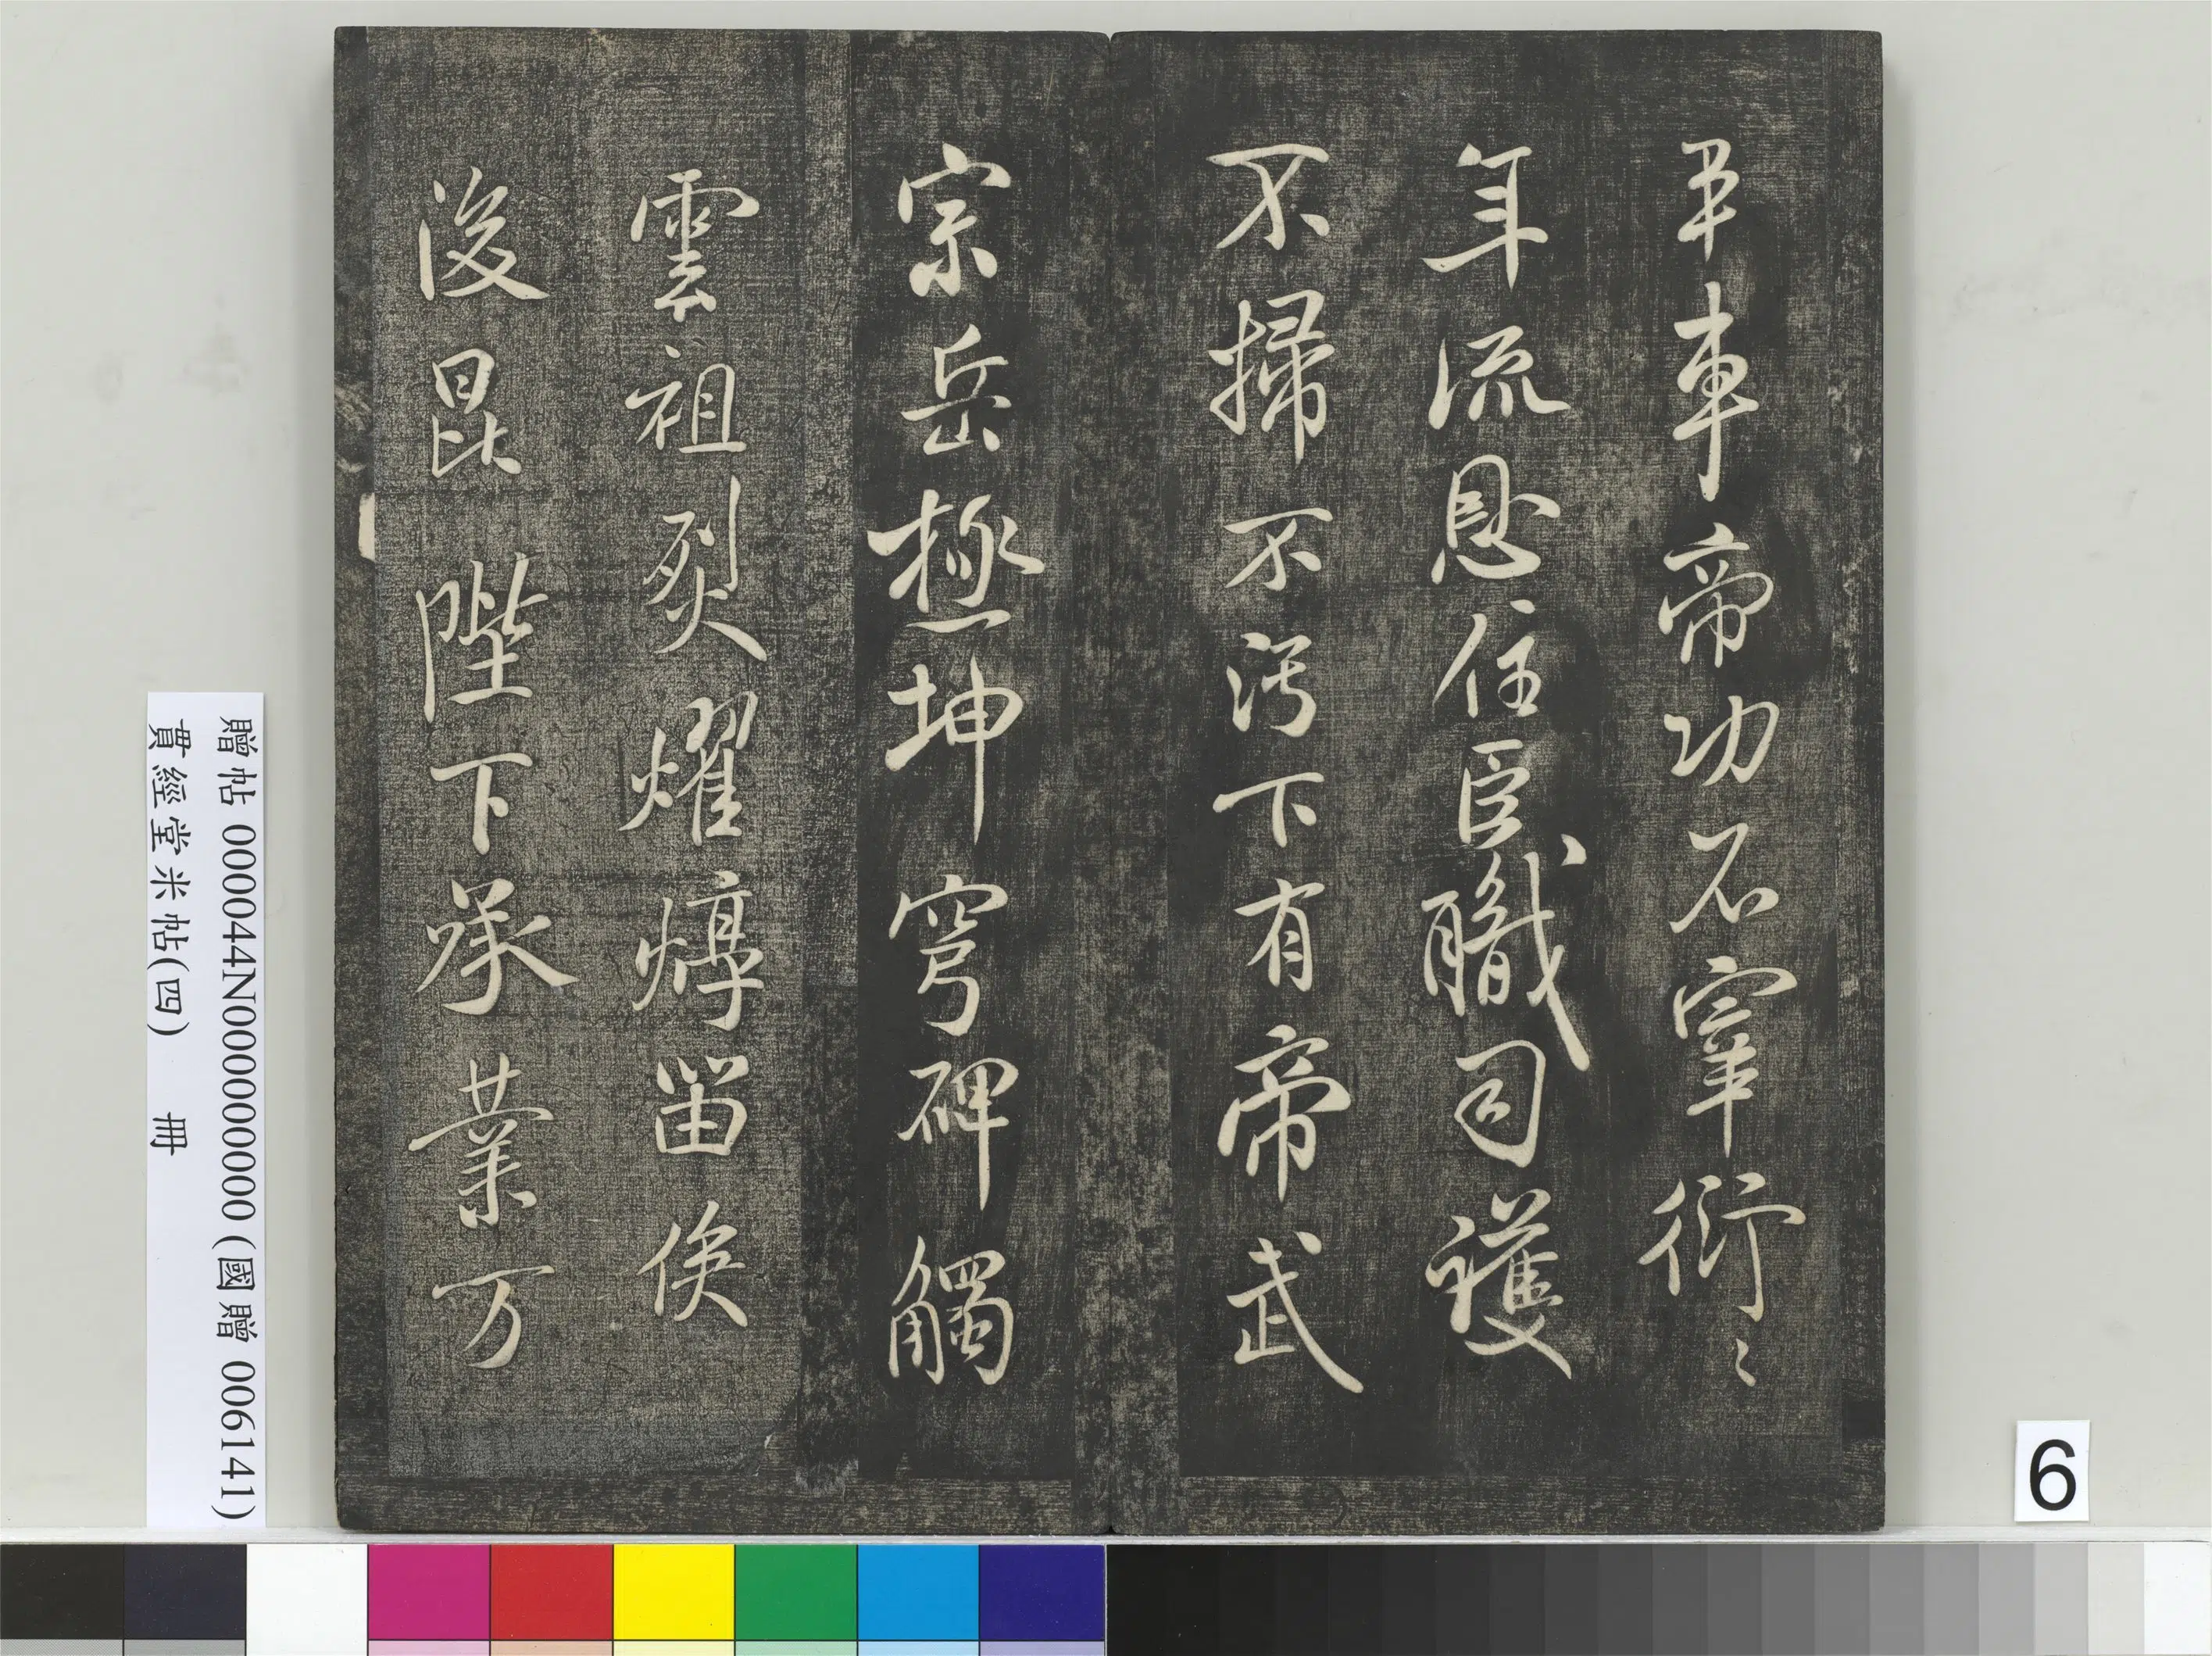 畢車帝功不宰衍〻
年流恩住臣職司護
不掃不污下有帝武
宗岳極坤穹碑觸
雲祖烈燿焞留俟
後昆陛下承業万
贈帖 000044N000000000 (國贈 006141)
貫經堂米帖(四) 冊
6